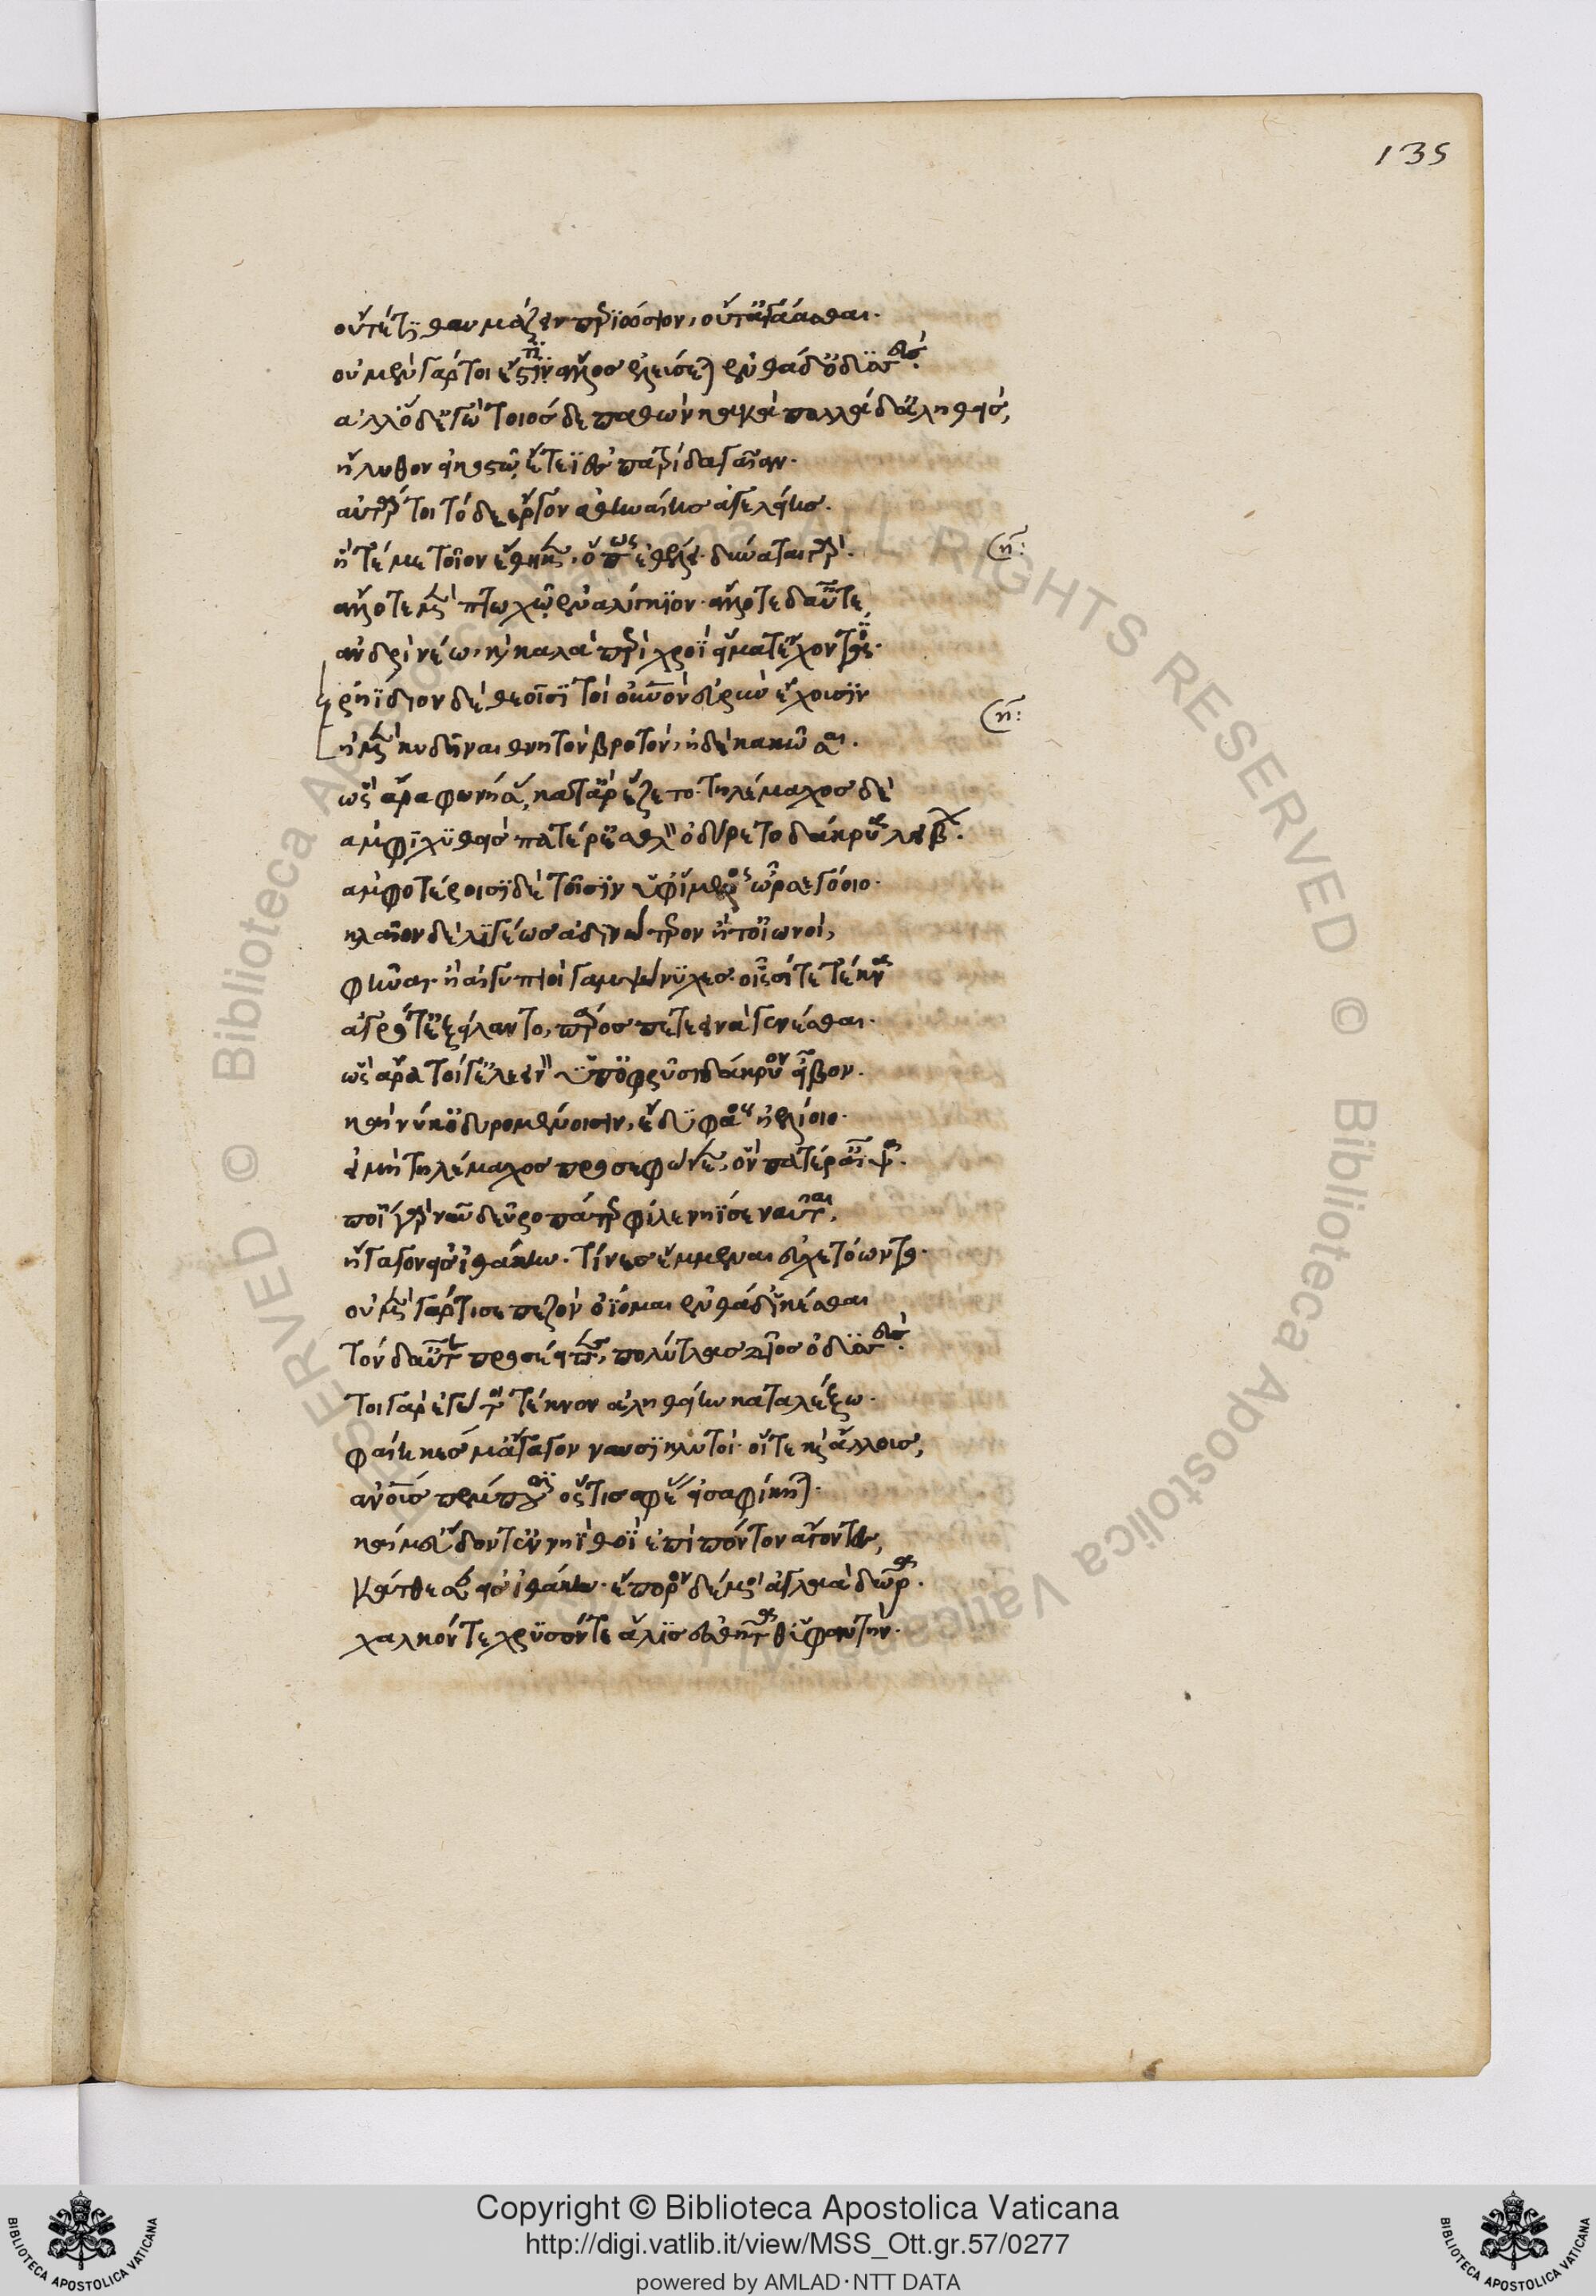 οὔτέ τι θαυμάζειν περιώσιον, οὔτ' ἀγάασθαι.
οὐ μὲν γάρ τοι ἔτ' ἄλλος ἐλεύσεται ἐνθάδ' ὀδυσσεύς.
ἀλλ' ὅδ' ἐγὼ τοιόσδε παθὼν κακὰ πολλὰ δ' ἀληθείς,
ἤλυθον εἰκοστῷ ἔτεϊ ἐς πατρίδα γαῖαν.
αὐτάρ τοι τόδε ἔργον ἀθηναίης ἀγελείης.
ἥ τέ με τοῖον ἔθηκεν. ὅπως ἐθέλει. δύναται γάρ.
ἄλλοτε μὲν πτωχῷ ἐναλίγκιον. ἄλλοτε δ' αὖτε
ἀνδρὶ νέῳ, καὶ καλὰ περὶ χροῒ εἵματ' ἔχοντι.
ῥηΐδιον δὲ θεοῖσι τοὶ οὐρανὸν εὐρὺν ἔχουσιν
ἠμὲν κυδῆναι θνητὸν βροτὸν, ἠδὲ κακῶσαι.
ὣς ἄρα φωνήσας, κατ' ἄρ' ἕζετο. τηλέμαχος δὲ
ἀμφιχυθεὶς πατέρ' ἐσθλὸν ὀδύρετο δάκρυα λείβων.
ἀμφοτέροισι δὲ τοῖσιν ὑφ' ἵμερος ὦρτο γόοιο.
κλαῖον δὲ λιγέως ἀδινώτερον ἤ τ' οἰωνοί,
φῆναι. ἢ αἰγυπιοὶ γαμψώνυχες. οἷσί τε τέκνα
ἀγρόται ἐξείλαντο, πάρος πετεεινὰ γενέσθαι.
ὣς ἄρα τοί γ' ἐλεεινὸν ὑπ' ὀφρύσι δάκρυον εἶβον.
καί νύ κ' ὀδυρομένοισιν, ἔδυ φάος ἠελίοιο.
εἰ μὴ τηλέμαχος προσεφώνεεν, ὃν πατέρ' αἶψα.
ποίῃ γὰρ νῦν δεῦρο πάτερ φίλε νηΐ σε ναῦται,
ἤγαγον εἰς ἰθάκην. τίνες ἔμμεναι εὐχετόωντο.
οὐ μὲν γάρ τί σε πεζὸν ὀΐομαι ἐνθάδ' ἱκέσθαι
τόν δ' αὖτε προσέειπε, πολύτλας δῖος ὀδυσσεύς.
τοιγὰρ ἐγώ τοι τέκνον ἀληθείην καταλέξω.
φαίηκες μ' ἄγαγον ναυσὶ κλυτοὶ. οἵ τε καὶ ἄλλους,
ἀνθρώπους πέμπουσιν ὅστις σφέας εἰσαφίκηται.
καί μ' εὕδοντ' ἐν νηῒ θοῇ ἐπὶ πόντον ἄγοντες,
κάτθεσαν εἰς ἰθάκην. ἔπορον δέ μοι ἀγλαὰ δῶρα.
χαλκόν τε χρυσόν τε ἅλις ἐσθῆτά θ' ὑφαντήν.
135
Copyright © Biblioteca Apostolica Vaticana
http://digi.vatlib.it/view/MSS_Ott.gr.57/0277
powered by AMLAD·NTT DATA
BIBLIOTECA APOSTOLICA VATICANA
BIBLIOTECA APOSTOLICA VATICANA